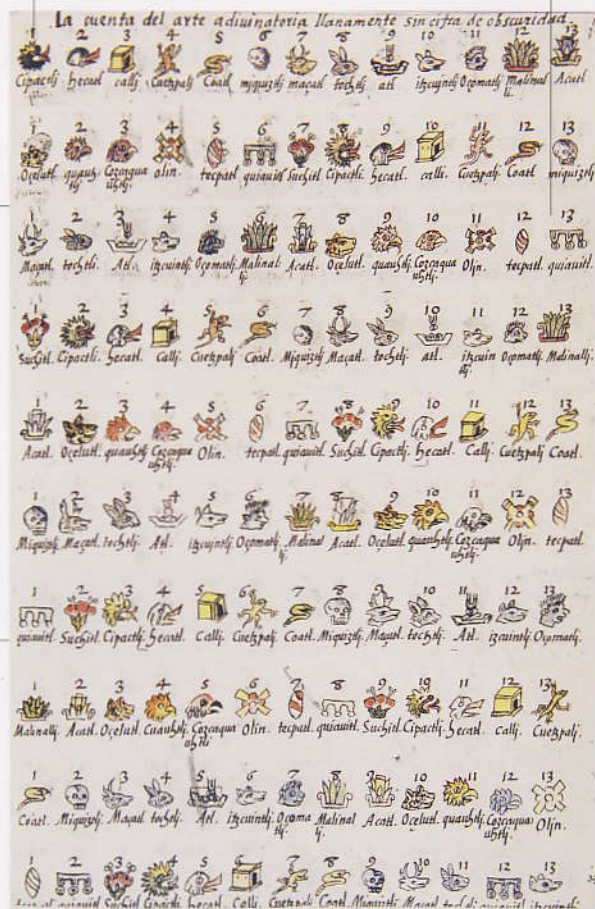 La cuenta del arte adivinatoria llanamente sin cifra de obscuridad.
1 2 3 4 5 6 7 8 9 10 11 12 13
Cipactlj hecatl callj Cuetzpalj Coatl miquiztlj maçatl tochtlj atl itzcuintlj Oçomatlj Malinal Acatl
li.
1 2 3 4 5 6 7 8 9 10 11 12 13
Oçelutl quauh Cozcaqua olin. tecpatl quiauitl Suchitl Cipactlj. hecatl. callj. Cuetzpalj Coatl miquiztlj
tlj uhtlj
1 2 3 4 5 6 7 8 9 10 11 12 13
Maçatl tochtlj. Atl. itzcuintlj Oçomatlj. Malinal Acatl. Oçelutl. quauhtlj. Cozcaqua Olin. tecpatl. quiauitl.
lj uhtlj
1 2 3 4 5 6 7 8 9 10 11 12 13
Suchitl Cipactlj. hecatl. Callj. Cuetzpalj Coatl. Miquiztlj Maçatl. tochtlj. atl. itzcuin Oçomatlj Malinallj.
tlj
1 2 3 4 5 6 7 8 9 10 11 12 13
Acatl. Oçelutl. quauhtlj Cozcaqua Olin. tecpatl. quiauitl. Suchitl Cipactlj. hecatl. Callj. Cuetzpalj Coatl.
uhtlj
1 2 3 4 5 6 7 8 9 10 11 12 13
Miquiztlj Maçatl. tochtlj. Atl. itzcuintlj. Oçomatlj. Malinal Acatl. Oçelutl. quauhtlj. Cozcaqua Olin. tecpatl.
lj uhtlj.
1 2 3 4 5 6 7 8 9 10 11 12 13
quiauitl Suchitl Cipactlj hecatl. Callj. Cuetzpalj Coatl. Miquiztlj. Maçatl. tochtlj. Atl. itzcuintlj Oçomatlj.
1 2 3 4 5 6 7 8 9 10 11 12 13
Malinallj. Acatl. Oçelutl Cuauhtlj. Cozcaqua Olin. tecpatl. quiauitl. Suchitl Cipactlj. hecatl. callj. Cuetzpalj.
uhtlj
1 2 3 4 5 6 7 8 9 10 11 12 13
Coatl. Miquiztlj. Maçatl tochtlj. Atl. itzcuintlj. Oçoma Malinal Acatl. Oçelutl. quauhtlj. Cozcaqua Olin.
tlj lj. uhtlj.
1 2 3 4 5 6 7 8 9 10 11 12 13
quiauitl Suchitl Cipactlj. hecatl. Callj. Cuetzpalj Coatl. Miquiztlj Maçatl